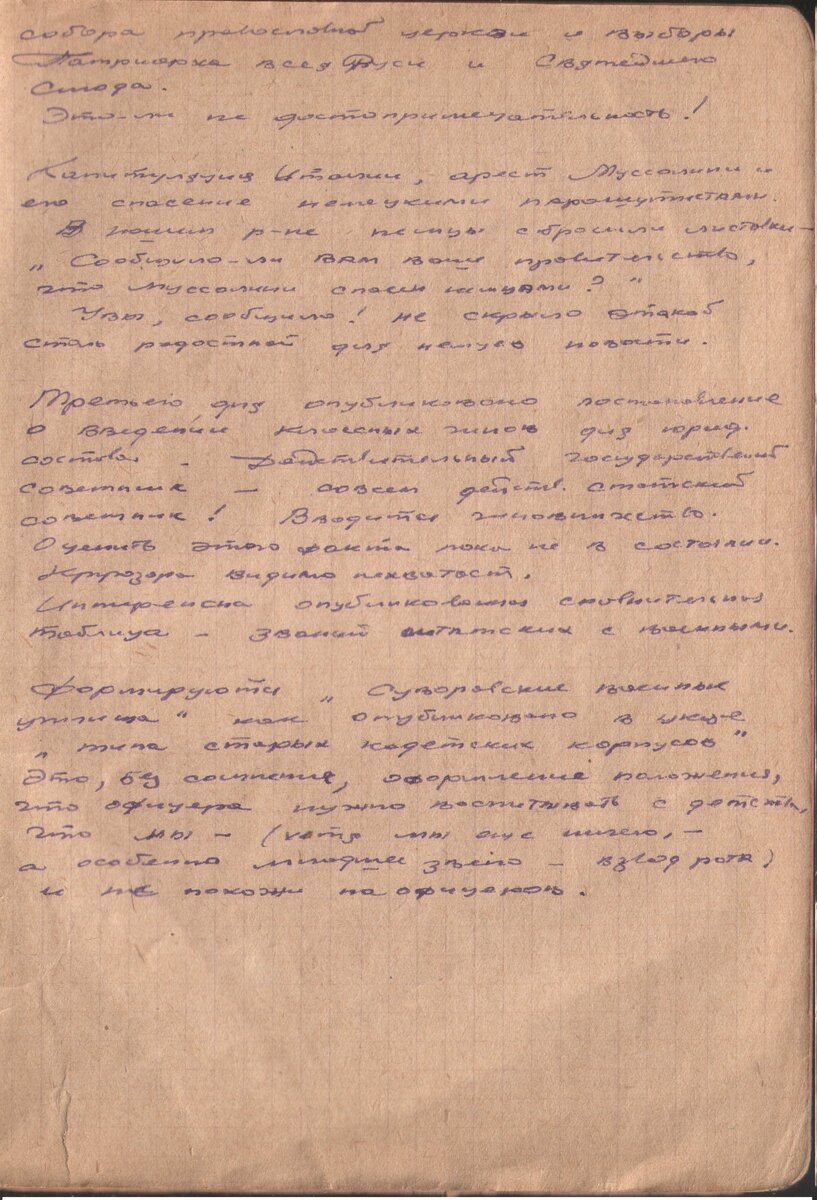 собора православной церкви и выборы
Патриарха всея Руси и Святейшего
Синода.
Это-ли не достопримечательность!
Капитуляция Италии, арест Муссолини и
его спасение немецкими парашутистами.
В нашем р-не немцы сбросили листовки –
„Сообщило-ли вам ваше правительство,
что Муссолини спасен нами?"
Увы, сообщило! Не скрыло этакой
столь радостной для немцев новости.
Третьего дня опубликовано постановление
о введении классных чинов для юрид.
состава. – Действительный государственный
советник – совсем действ. статский
советник! Вводится чиновничество.
Оценить этого факта пока не в состоянии.
Кругозора видимо нехватает.
Интересна опубликованная сравнительная
таблица – званий штатских с военными.
Формируются „Суворовские военные
училища" как опубликовано в указе
„типа старых кадетских корпусов"
Это, без сомнения, оформление положения,
что офицера нужно воспитывать с детства,
что мы – (хотя мы еще ничего, –
а особенно младшее звено – взвод рота)
и не похожи на офицеров.